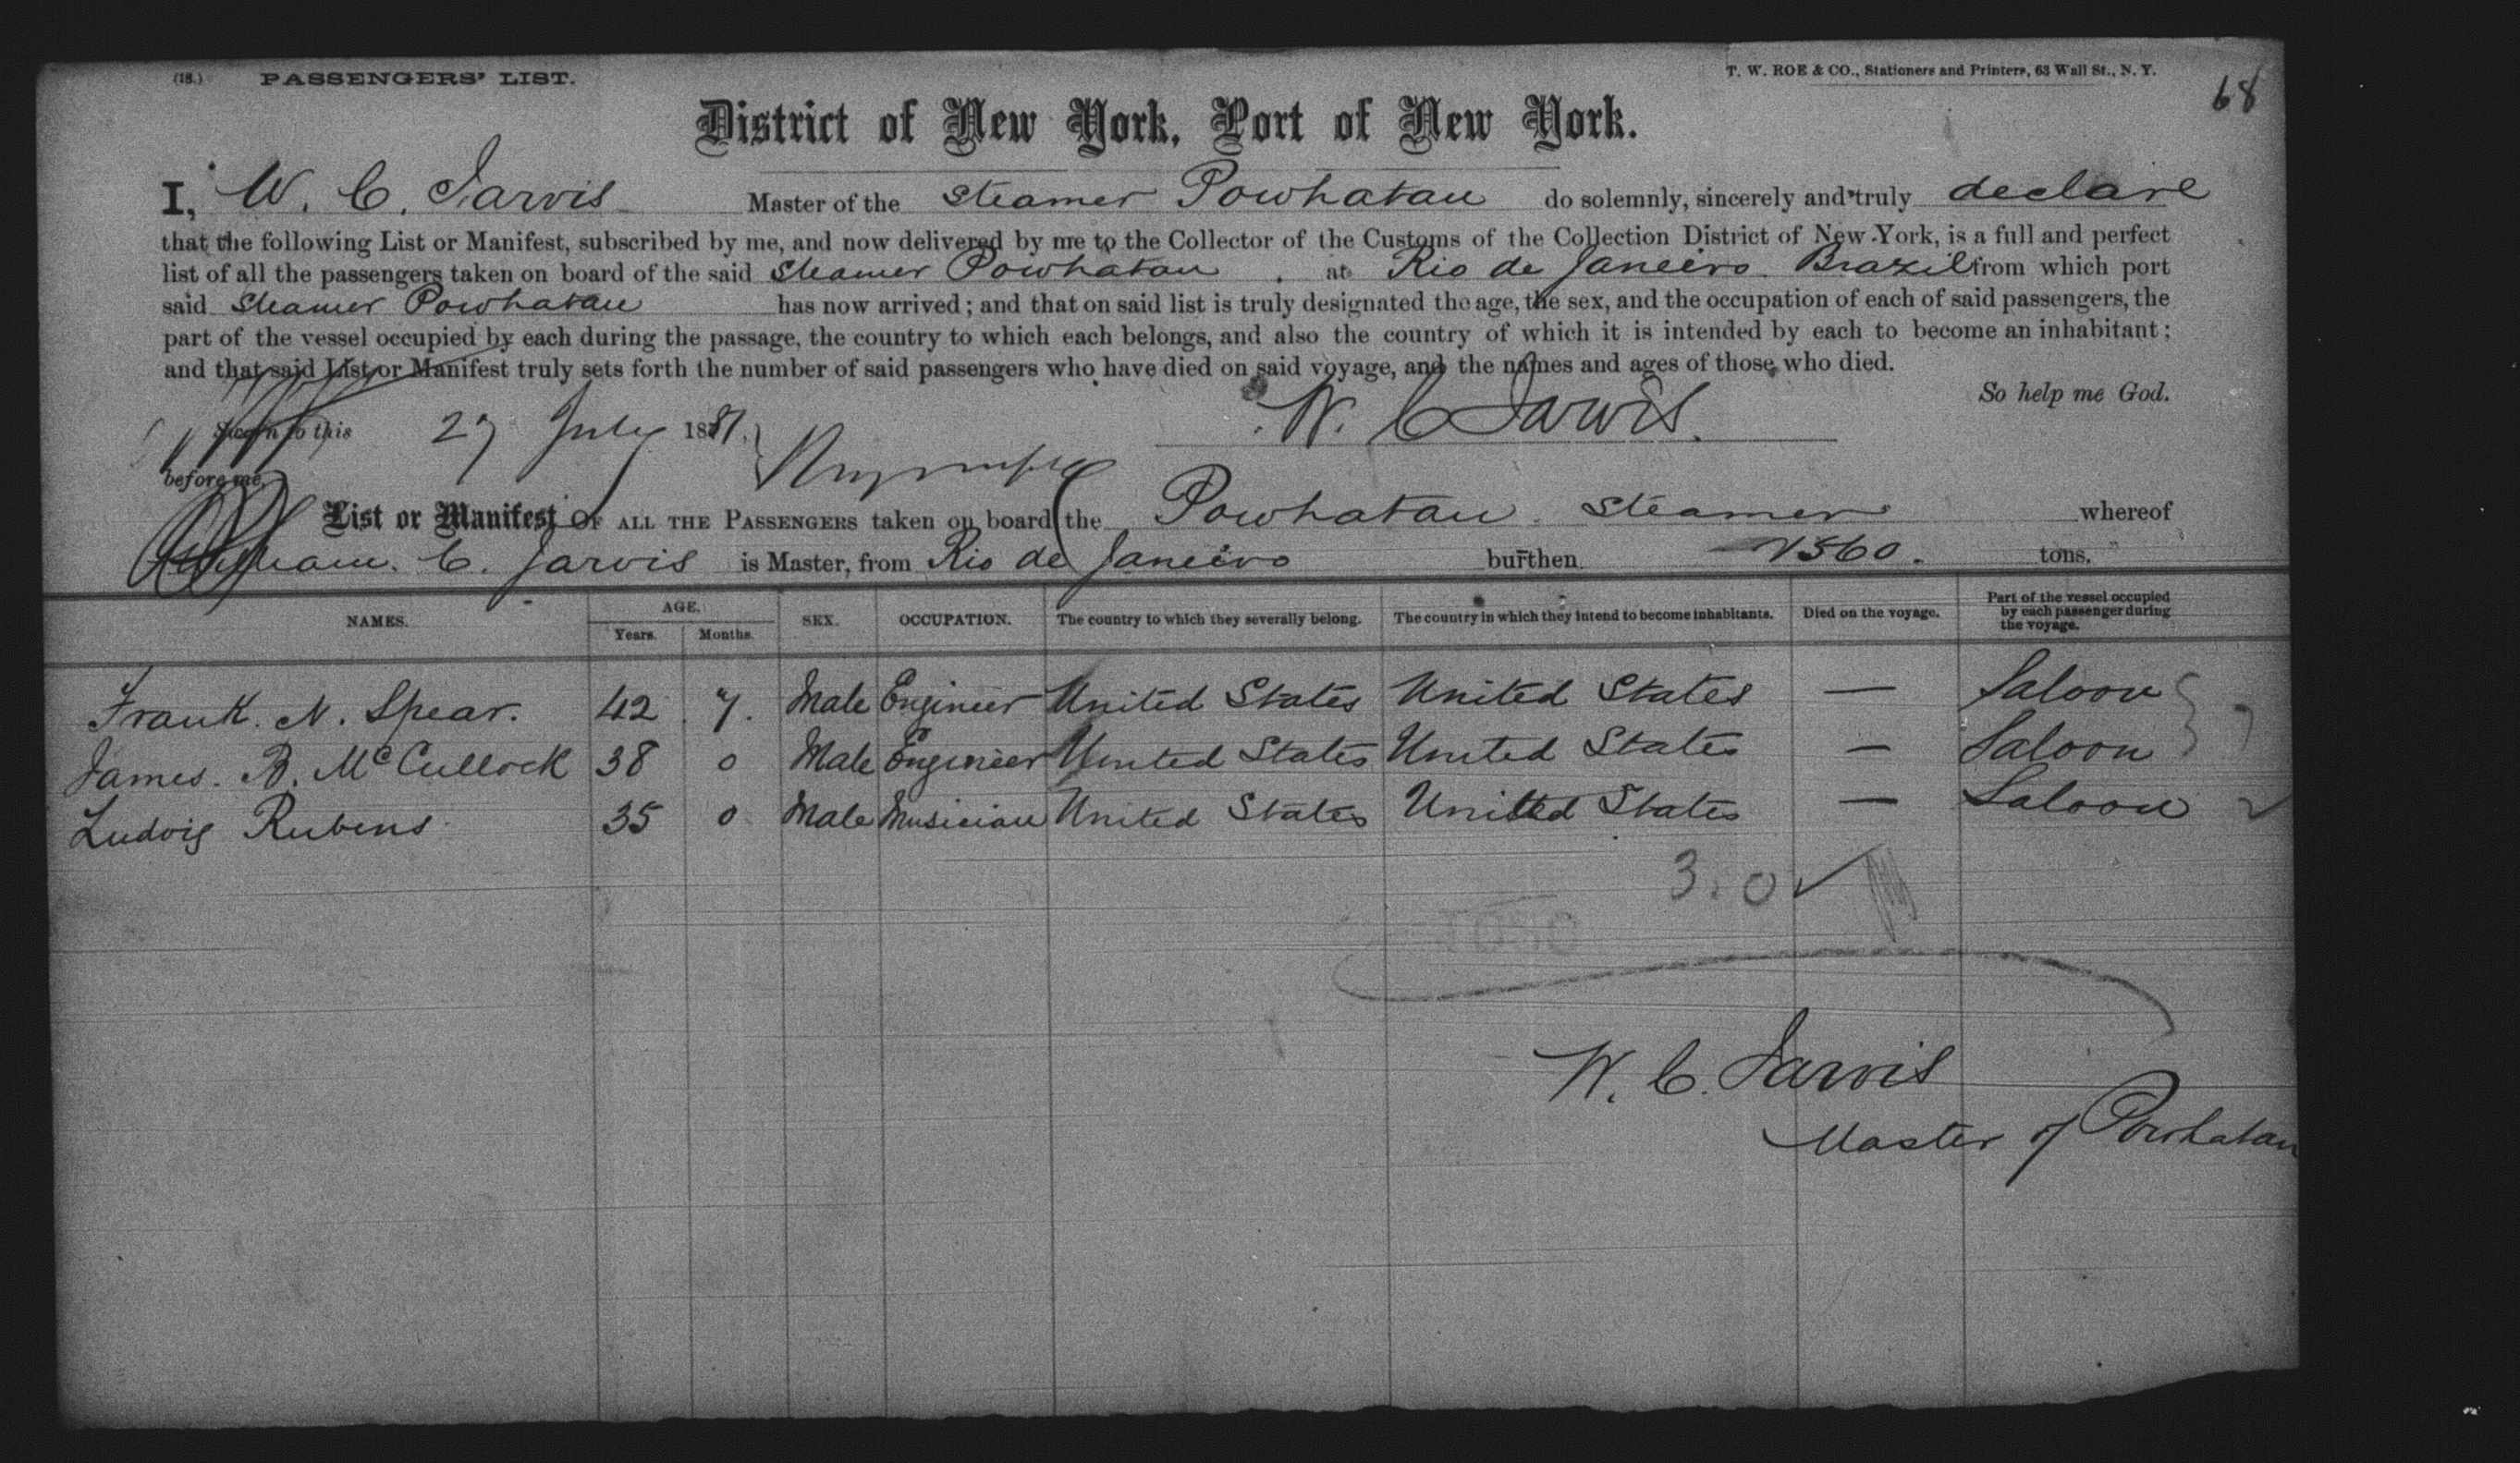 (18.) PASSENGERS' LIST. T. W. ROE & CO., Stationers and Printers, 63 Wall St., N. Y.
68
District of New York, Port of New York.
I, W. C. Jarvis Master of the Steamer Powhatan do solemnly, sincerely and truly declare
that the following List or Manifest, subscribed by me, and now delivered by me to the Collector of the Customs of the Collection District of New-York, is a full and perfect
list of all the passengers taken on board of the said Steamer Powhatan, at Rio de Janeiro Brazil from which port
said Steamer Powhatan has now arrived; and that on said list is truly designated the age, the sex, and the occupation of each of said passengers, the
part of the vessel occupied by each during the passage, the country to which each belongs, and also the country of which it is intended by each to become an inhabitant;
and that said List or Manifest truly sets forth the number of said passengers who have died on said voyage, and the names and ages of those who died.
So help me God.
Sworn to this 27 July 1881. W. C Jarvis.
before me,
List or Manifest OF ALL THE PASSENGERS taken on board the Powhatan Steamer whereof
William. C. Jarvis is Master, from Rio de Janeiro burthen 1560. tons.
NAMES. AGE. Years. Months. SEX. OCCUPATION. The country to which they severally belong. The country in which they intend to become inhabitants. Died on the voyage. Part of the vessel occupied by each passenger during the voyage.
Frank. N. Spear. 42 7. Male Engineer United States United States — Saloon
James. B. McCullock 38 0 Male Engineer United States United States — Saloon
Ludvig Rubens 35 0 Male Musician United States United States — Saloon
3. 0
W. C. Jarvis
Master of Powhatan